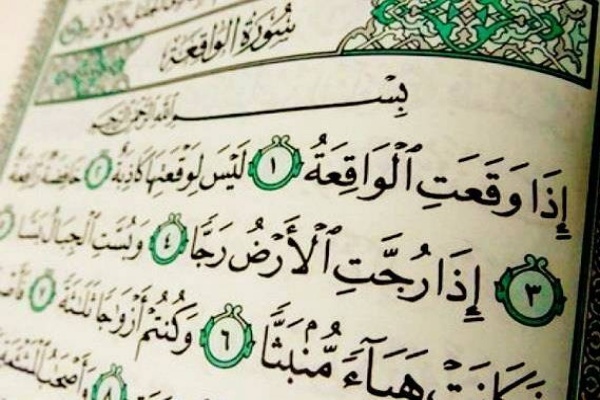 سُورَةُ الْوَاقِعَةِ
بِسْمِ اللَّهِ الرَّحْمَٰنِ الرَّحِيمِ
إِذَا وَقَعَتِ ٱلْوَاقِعَةُ ١ لَيْسَ لِوَقْعَتِهَا كَاذِبَةٌ ٢ خَافِضَةٌ رَّافِعَةٌ
٣ إِذَا رُجَّتِ ٱلْأَرْضُ رَجًّا ٤ وَبُسَّتِ ٱلْجِبَالُ بَسًّا
فَكَانَتْ هَبَآءً مُّنۢبَثًّا ٦ وَكُنتُمْ أَزْوَاجًا ثَلَٰثَةً ٧
٨ وَأَصْحَٰبُ